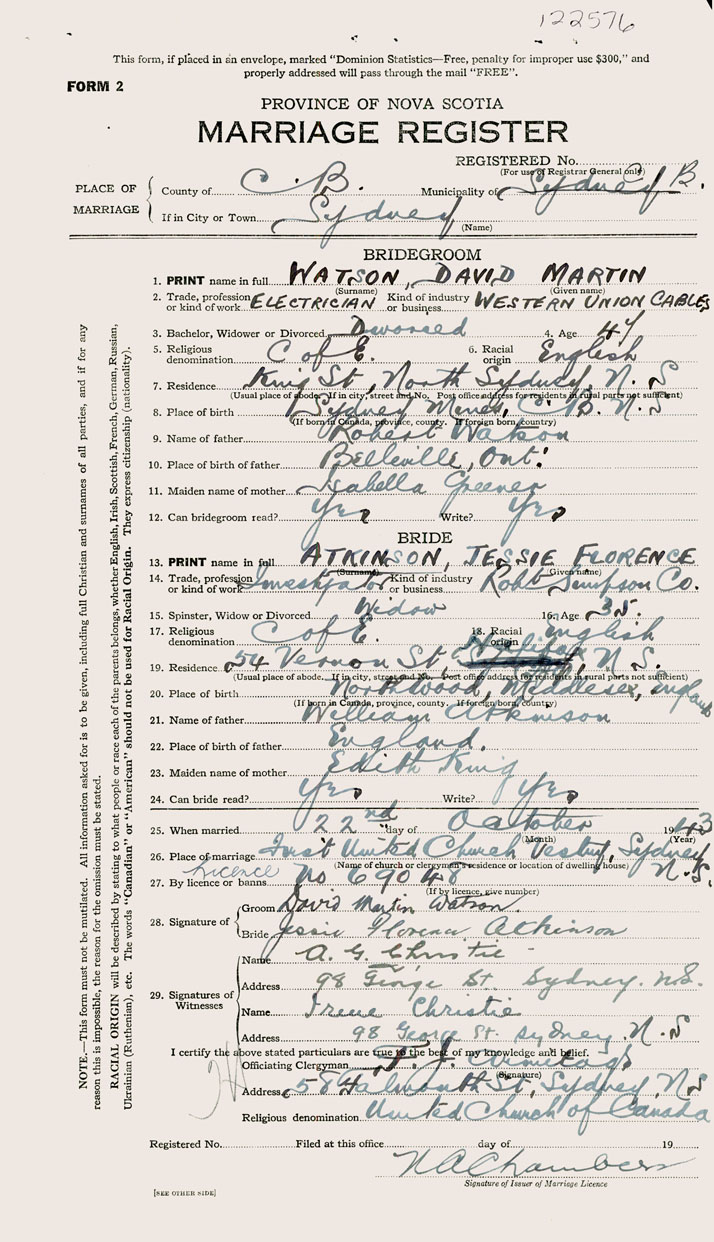 122576
This form, if placed in an envelope, marked "Dominion Statistics—Free, penalty for improper use $300," and
properly addressed will pass through the mail "FREE".
FORM 2
PROVINCE OF NOVA SCOTIA
MARRIAGE REGISTER
REGISTERED No.
(For use of Registrar General only)
PLACE OF MARRIAGE
County of C. B. Municipality of Sydney B.
If in City or Town Sydney
(Name)
BRIDEGROOM
1. PRINT name in full WATSON, DAVID MARTIN
(Surname) (Given name)
2. Trade, profession or kind of work ELECTRICIAN Kind of industry or business WESTERN UNION CABLES
3. Bachelor, Widower or Divorced Divorced 4. Age 47
5. Religious denomination C of E. 6. Racial origin English
7. Residence King St, North Sydney, N. S
(Usual place of abode. If in city, street and No. Post office address for residents in rural parts not sufficient)
8. Place of birth Sydney Mines, C. B. N. S
(If born in Canada, province, county. If foreign born, country)
9. Name of father Robert Watson
10. Place of birth of father Belleville, Ont.
11. Maiden name of mother Isabella Greener
12. Can bridegroom read? Yes Write? Yes
BRIDE
13. PRINT name in full ATKINSON, JESSIE FLORENCE
(Surname) (Given name)
14. Trade, profession or kind of work Investigator Kind of industry or business Robt Simpson Co.
15. Spinster, Widow or Divorced Widow 16. Age 35.
17. Religious denomination C of E. 18. Racial origin English
19. Residence 54 Vernon St, Halifax, N. S.
(Usual place of abode. If in city, street and No. Post office address for residents in rural parts not sufficient)
20. Place of birth Northwood, Middlesex, England
(If born in Canada, province, county. If foreign born, country)
21. Name of father William Atkinson
22. Place of birth of father England.
23. Maiden name of mother Edith King
24. Can bride read? Yes Write? Yes
25. When married 22nd day of October 1943
(Month) (Year)
26. Place of marriage First United Church Vestry, Sydney N. S.
(Name of church or clergyman's residence or location of dwelling house)
27. By licence or banns Licence No 69048
(If by licence, give number)
28. Signature of
Groom David Martin Watson.
Bride Jessie Florence Atkinson
29. Signatures of Witnesses
Name A. G. Christie
Address 98 George St Sydney. N.S.
Name Irene Christie
Address 98 George St. Sydney. N. S
I certify the above stated particulars are true to the best of my knowledge and belief.
Officiating Clergyman
(Signature)
Address 58 St, Sydney, N S
Religious denomination United Church of Canada
Registered No. Filed at this office day of 19
N A Chambers
Signature of Issuer of Marriage Licence
[SEE OTHER SIDE]
NOTE.—This form must not be mutilated. All information asked for is to be given, including full Christian and surnames of all parties, and if for any
reason this is impossible, the reason for the omission must be stated.
RACIAL ORIGIN will be described by stating to what people or race each of the parents belongs, whether English, Irish, Scottish, French, German, Russian,
Ukrainian (Ruthenian), etc. The words "Canadian" or "American" should not be used for Racial Origin. They express citizenship (nationality).